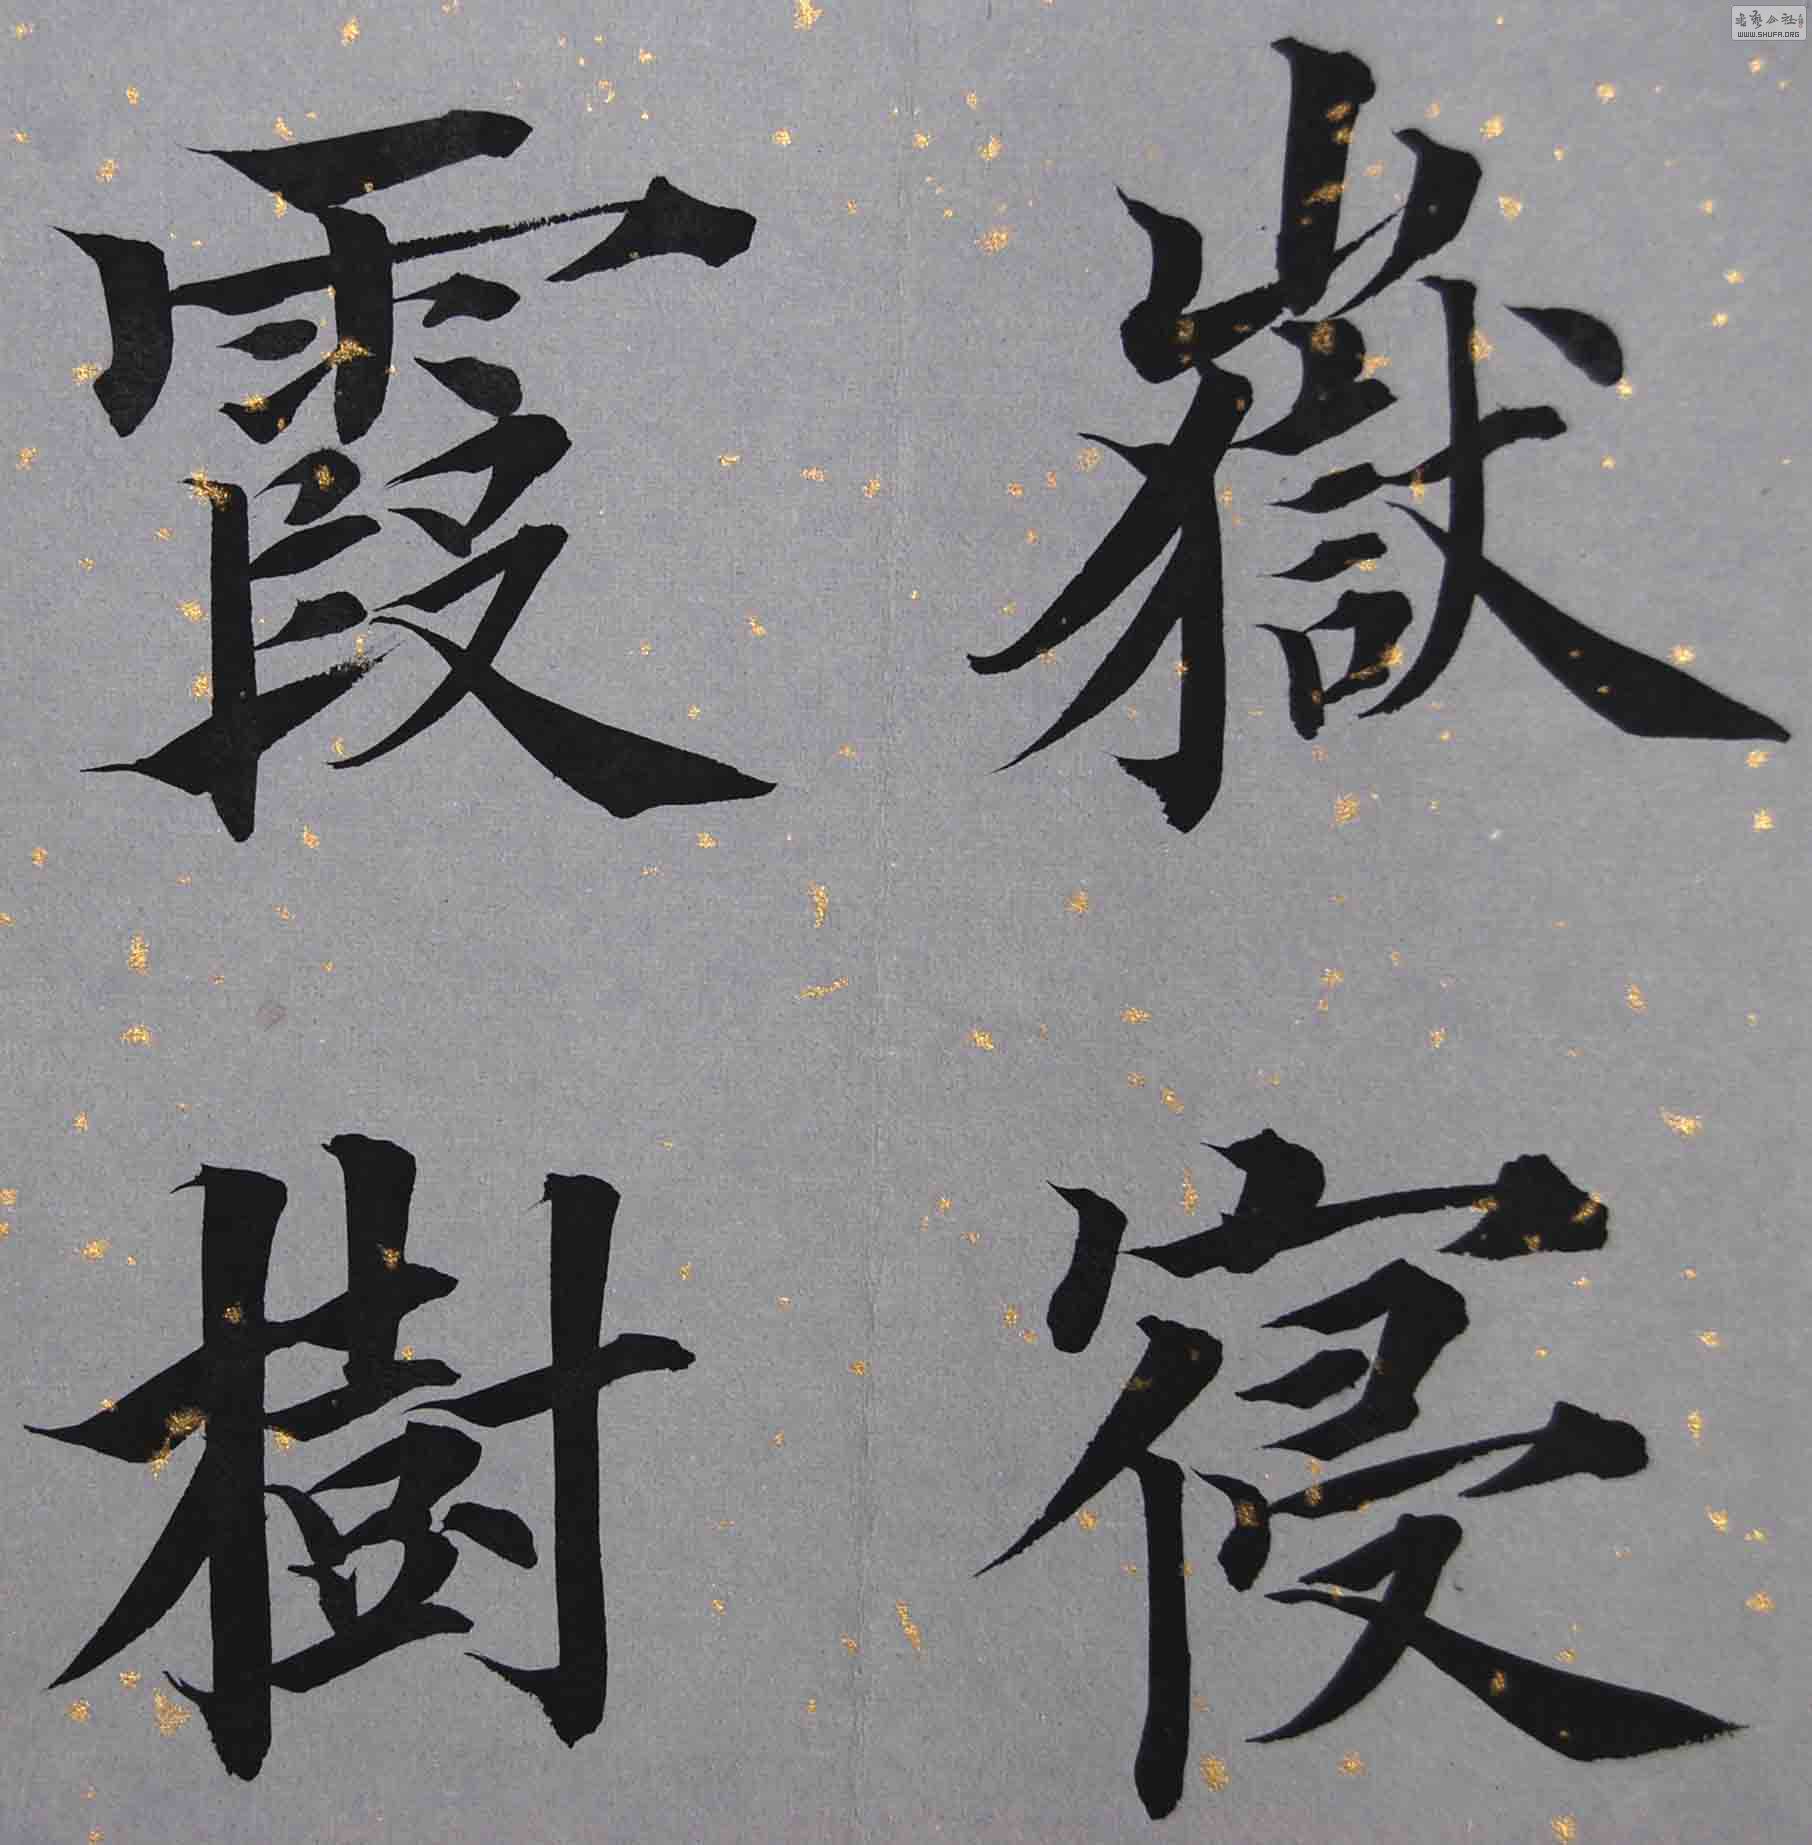 嶽寑
霞樹
书艺公社
WWW.SHUFA.ORG